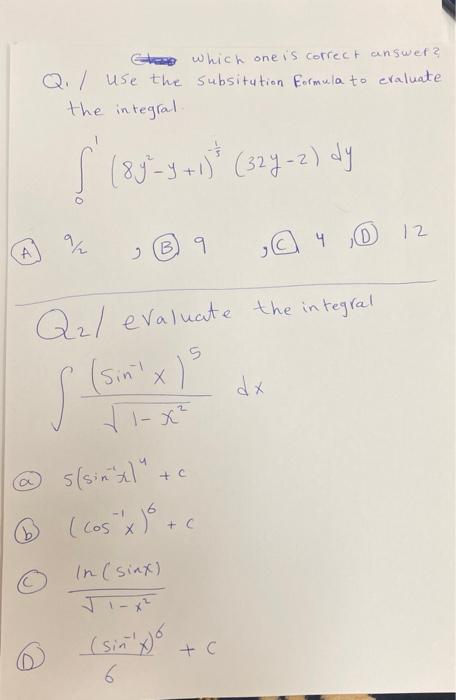 which one is correct answer?
Q1/ Use the Subsitution Formula to evaluate
the integral.
∫₀¹ (8y²-y+1)^(-1/3) (32y-2) dy
Ⓐ 9/2 , Ⓑ 9 , Ⓒ 4 , Ⓓ 12
Q2/ evaluate the integral
∫ (sin⁻¹ x)⁵ / √(1-x²) dx
ⓐ 5(sin⁻¹x)⁴ + c
ⓑ (cos⁻¹x)⁶ + c
Ⓒ ln(sinx) / √(1-x²)
Ⓓ (sin⁻¹x)⁶ / 6 + c